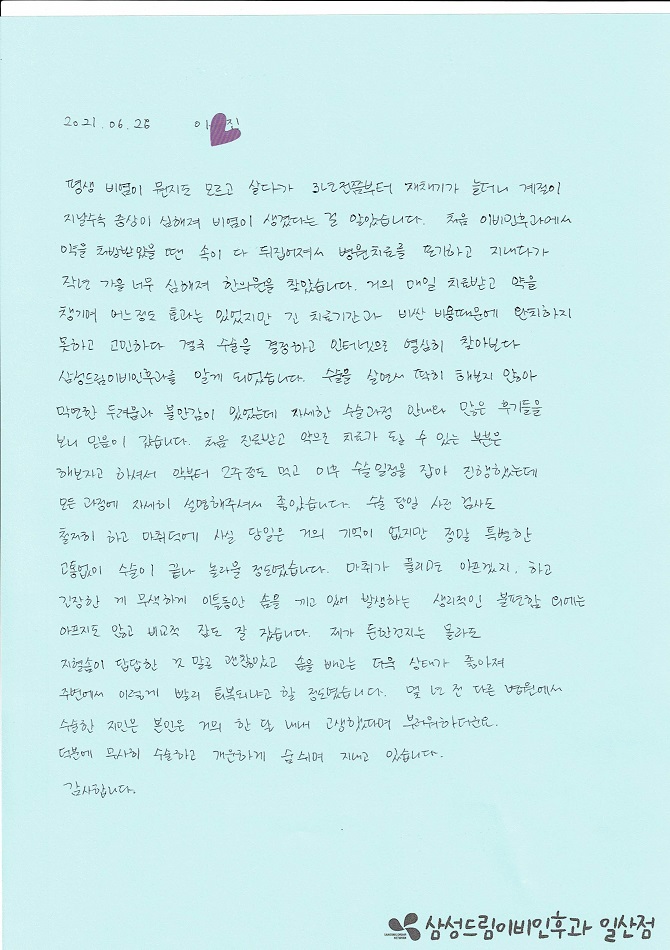 2021.06.28 이 진
평생 비염이 뭔지도 모르고 살다가 3년전쯤부터 재채기가 늘더니 계절이
지날수록 증상이 심해져 비염이 생겼다는 걸 알았습니다. 처음 이비인후과에서
약을 처방받았을 땐 속이 다 뒤집어져서 병원치료를 포기하고 지내다가
작년 가을 너무 심해져 한의원을 찾았습니다. 거의 매일 치료받고 약을
챙기며 어느정도 효과는 있었지만 긴 치료기간과 비싼 비용때문에 완치하지
못하고 고민하다 결국 수술을 결정하고 인터넷으로 열심히 찾아보다
삼성드림이비인후과를 알게 되었습니다. 수술을 살면서 딱히 해보지 않아
막연한 두려움과 불안감이 있었는데 자세한 수술과정 안내와 많은 후기들을
보니 믿음이 갔습니다. 처음 진료받고 약으로 치료가 될 수 있는 부분은
해보자고 하셔서 약부터 2주정도 먹고 이후 수술일정을 잡아 진행했는데
모든 과정에 자세히 설명해주셔서 좋았습니다. 수술 당일 사전 검사도
철저히 하고 마취덕에 사실 당일은 거의 기억이 없지만 정말 특별한
고통없이 수술이 끝나 놀라울 정도였습니다. 마취가 풀리고도 아프겠지. 하고
긴장한 게 무색하게 이틀동안 솜을 끼고 있어 발생하는 생리적인 불편함 외에는
아프지도 않고 비교적 잠도 잘 잤습니다. 제가 둔한건지는 몰라도
지혈솜이 답답한 것 말곤 괜찮았고 솜을 빼고는 더욱 상태가 좋아져
주변에서 이렇게 빨리 회복되냐고 할 정도였습니다. 몇 년 전 다른 병원에서
수술한 지인은 본인은 거의 한 달 내내 고생했다며 부러워하더군요.
덕분에 무사히 수술하고 개운하게 숨쉬며 지내고 있습니다.
감사합니다.
삼성드림이비인후과 일산점